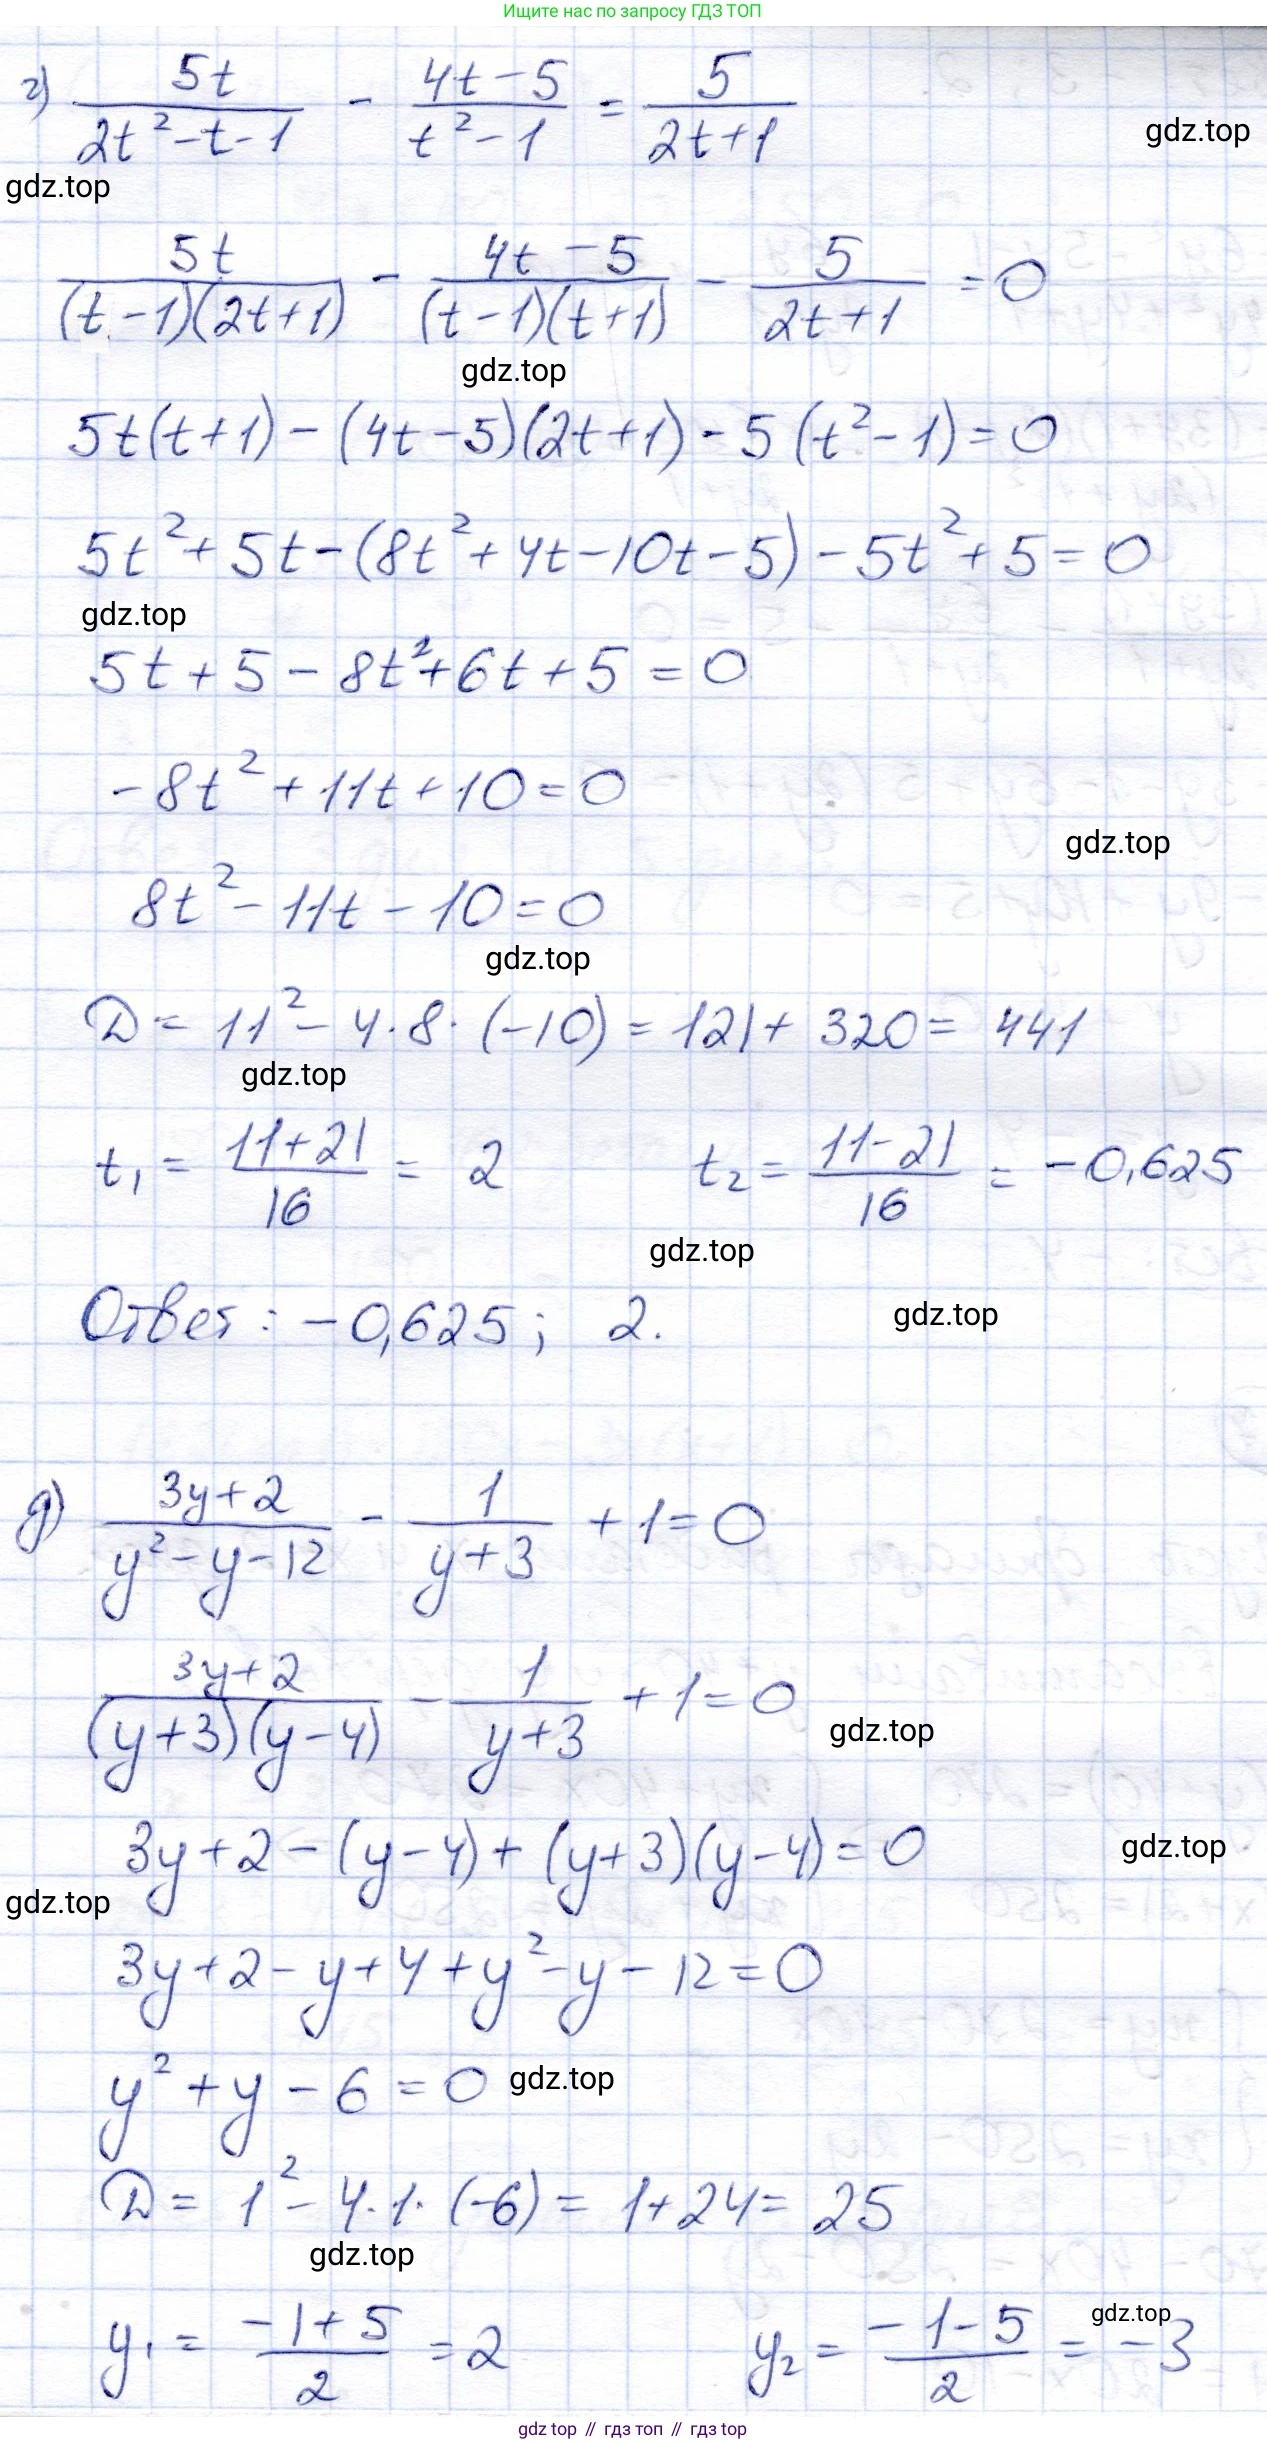 Ищите нас по запросу ГДЗ ТОП
г) 5t/(2t²-t-1) - (4t-5)/(t²-1) = 5/(2t+1)
gdz.top
gdz.top
5t/((t-1)(2t+1)) - (4t-5)/((t-1)(t+1)) - 5/(2t+1) = 0
gdz.top
5t(t+1) - (4t-5)(2t+1) - 5(t²-1) = 0
5t² + 5t - (8t² + 4t - 10t - 5) - 5t² + 5 = 0
gdz.top
5t + 5 - 8t² + 6t + 5 = 0
-8t² + 11t + 10 = 0
gdz.top
8t² - 11t - 10 = 0
gdz.top
D = 11² - 4·8·(-10) = 121 + 320 = 441
gdz.top
t₁ = (11+21)/16 = 2 t₂ = (11-21)/16 = -0,625
gdz.top
Ответ: -0,625; 2.
gdz.top
д) (3y+2)/(y²-y-12) - 1/(y+3) + 1 = 0
(3y+2)/((y+3)(y-4)) - 1/(y+3) + 1 = 0
gdz.top
3y + 2 - (y-4) + (y+3)(y-4) = 0
gdz.top
gdz.top
3y + 2 - y + 4 + y² - y - 12 = 0
y² + y - 6 = 0
gdz.top
D = 1² - 4·1·(-6) = 1 + 24 = 25
gdz.top
y₁ = (-1+5)/2 = 2 y₂ = (-1-5)/2 = -3
gdz.top
gdz top // гдз топ // gdz top